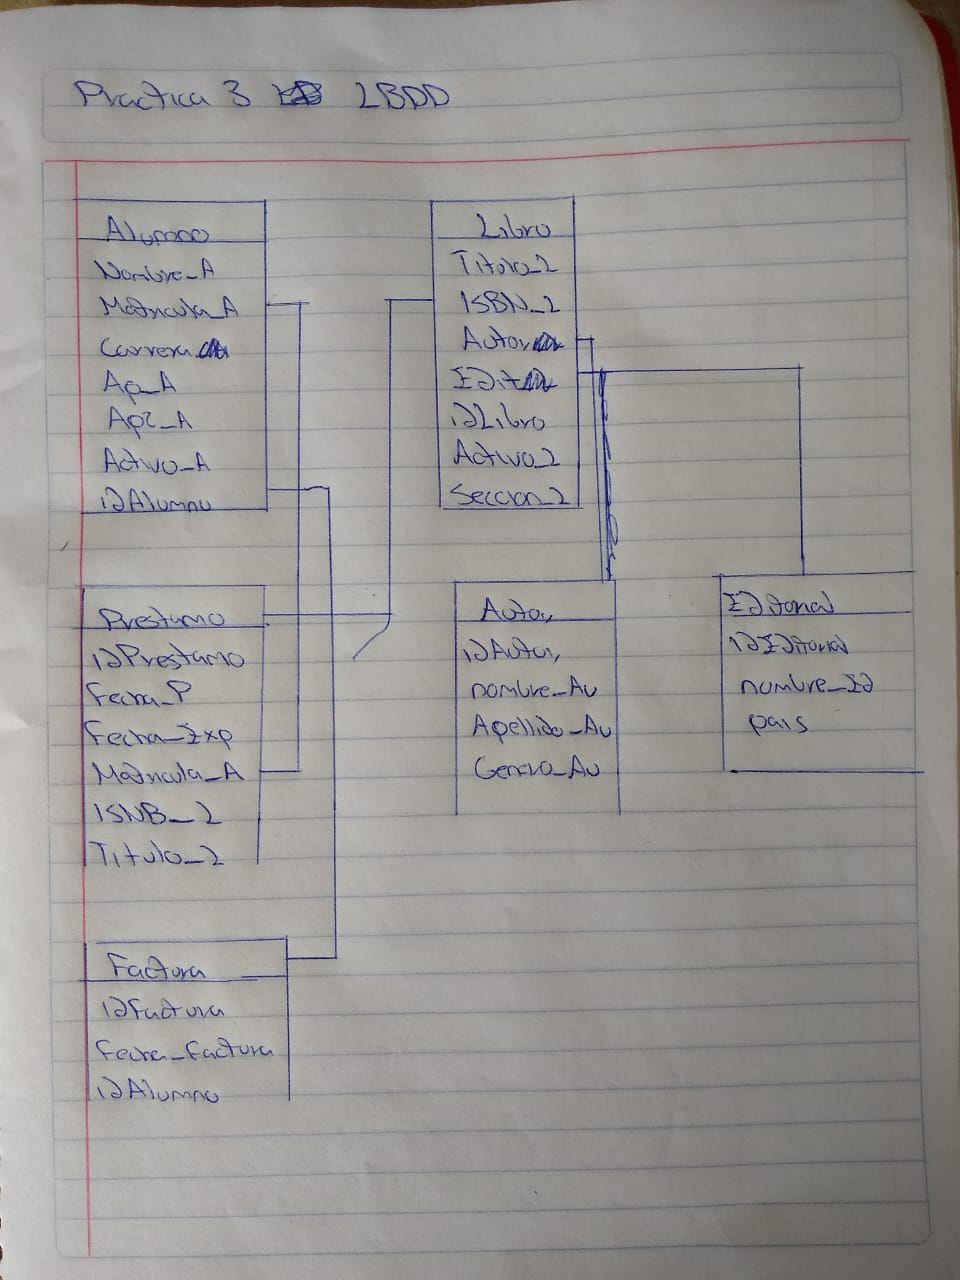 Practica 3 LBDD
Alumno
Nombre_A
Matricula_A
Carrera
Ap_A
Ap2_A
Activo_A
idAlumno
Libro
Titulo_L
ISBN_L
Autor
Edit
idLibro
Activo_L
Seccion_L
Prestamo
idPrestamo
Fecha_P
Fecha_Exp
Matricula_A
ISNB_L
Titulo_L
Autor
idAutor
nombre_Au
Apellido_Au
Genero_Au
Editorial
idEditorial
nombre_Ed
pais
Factura
idFactura
Fecha_Factura
idAlumno